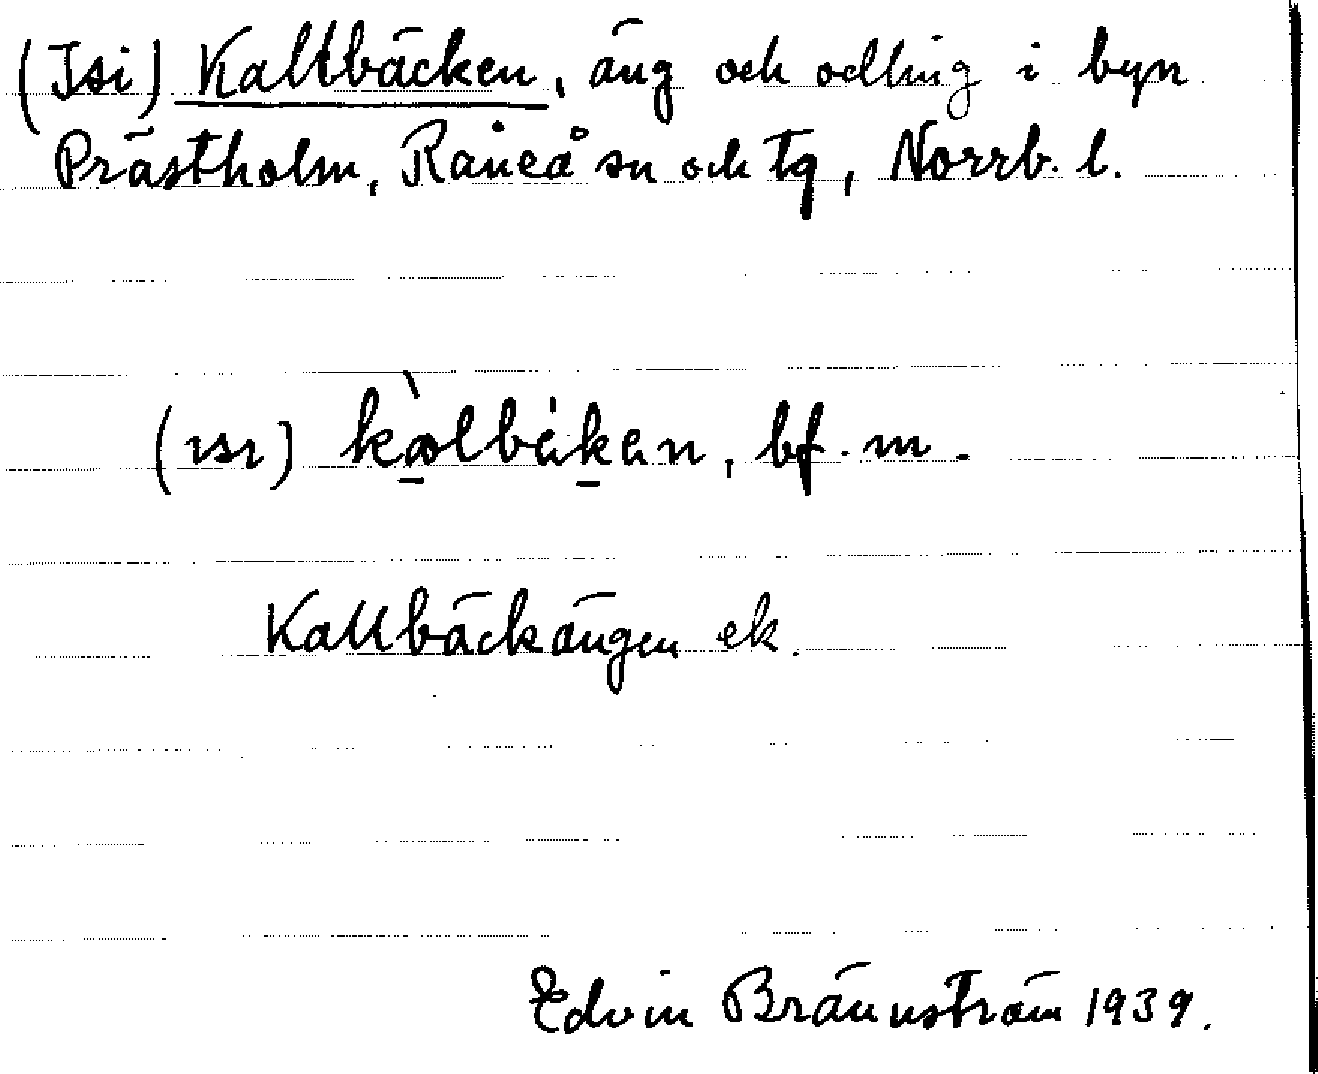 (Isi) Kallbäcken, äng och odling i byn
Prästholm, Råneå sn och tg, Norrb. l.
bf. m.
Kallbäckängen ek.
Edvin Brännström 1939.